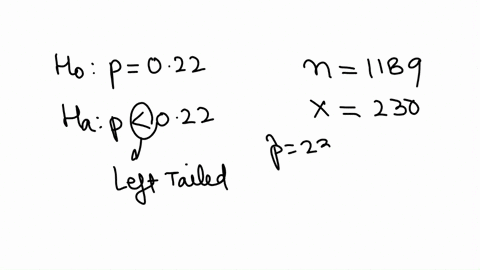 H₀: p = 0.22
Ha: p < 0.22
Left Tailed
n = 1189
x = 230
p̂ = 23